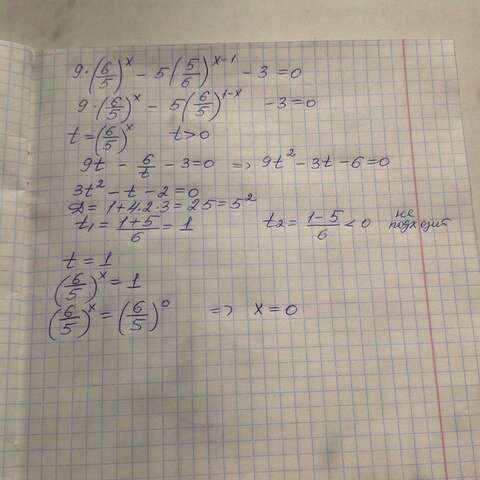 9·(6/5)^x − 5(5/6)^(x−1) − 3 = 0
9·(6/5)^x − 5(6/5)^(1−x) − 3 = 0
t = (6/5)^x t > 0
9t − 6/t − 3 = 0 ⇒ 9t² − 3t − 6 = 0
3t² − t − 2 = 0
D = 1 + 4·2·3 = 25 = 5²
t₁ = (1+5)/6 = 1 t₂ = (1−5)/6 < 0 не подходит
t = 1
(6/5)^x = 1
(6/5)^x = (6/5)^0 ⇒ x = 0